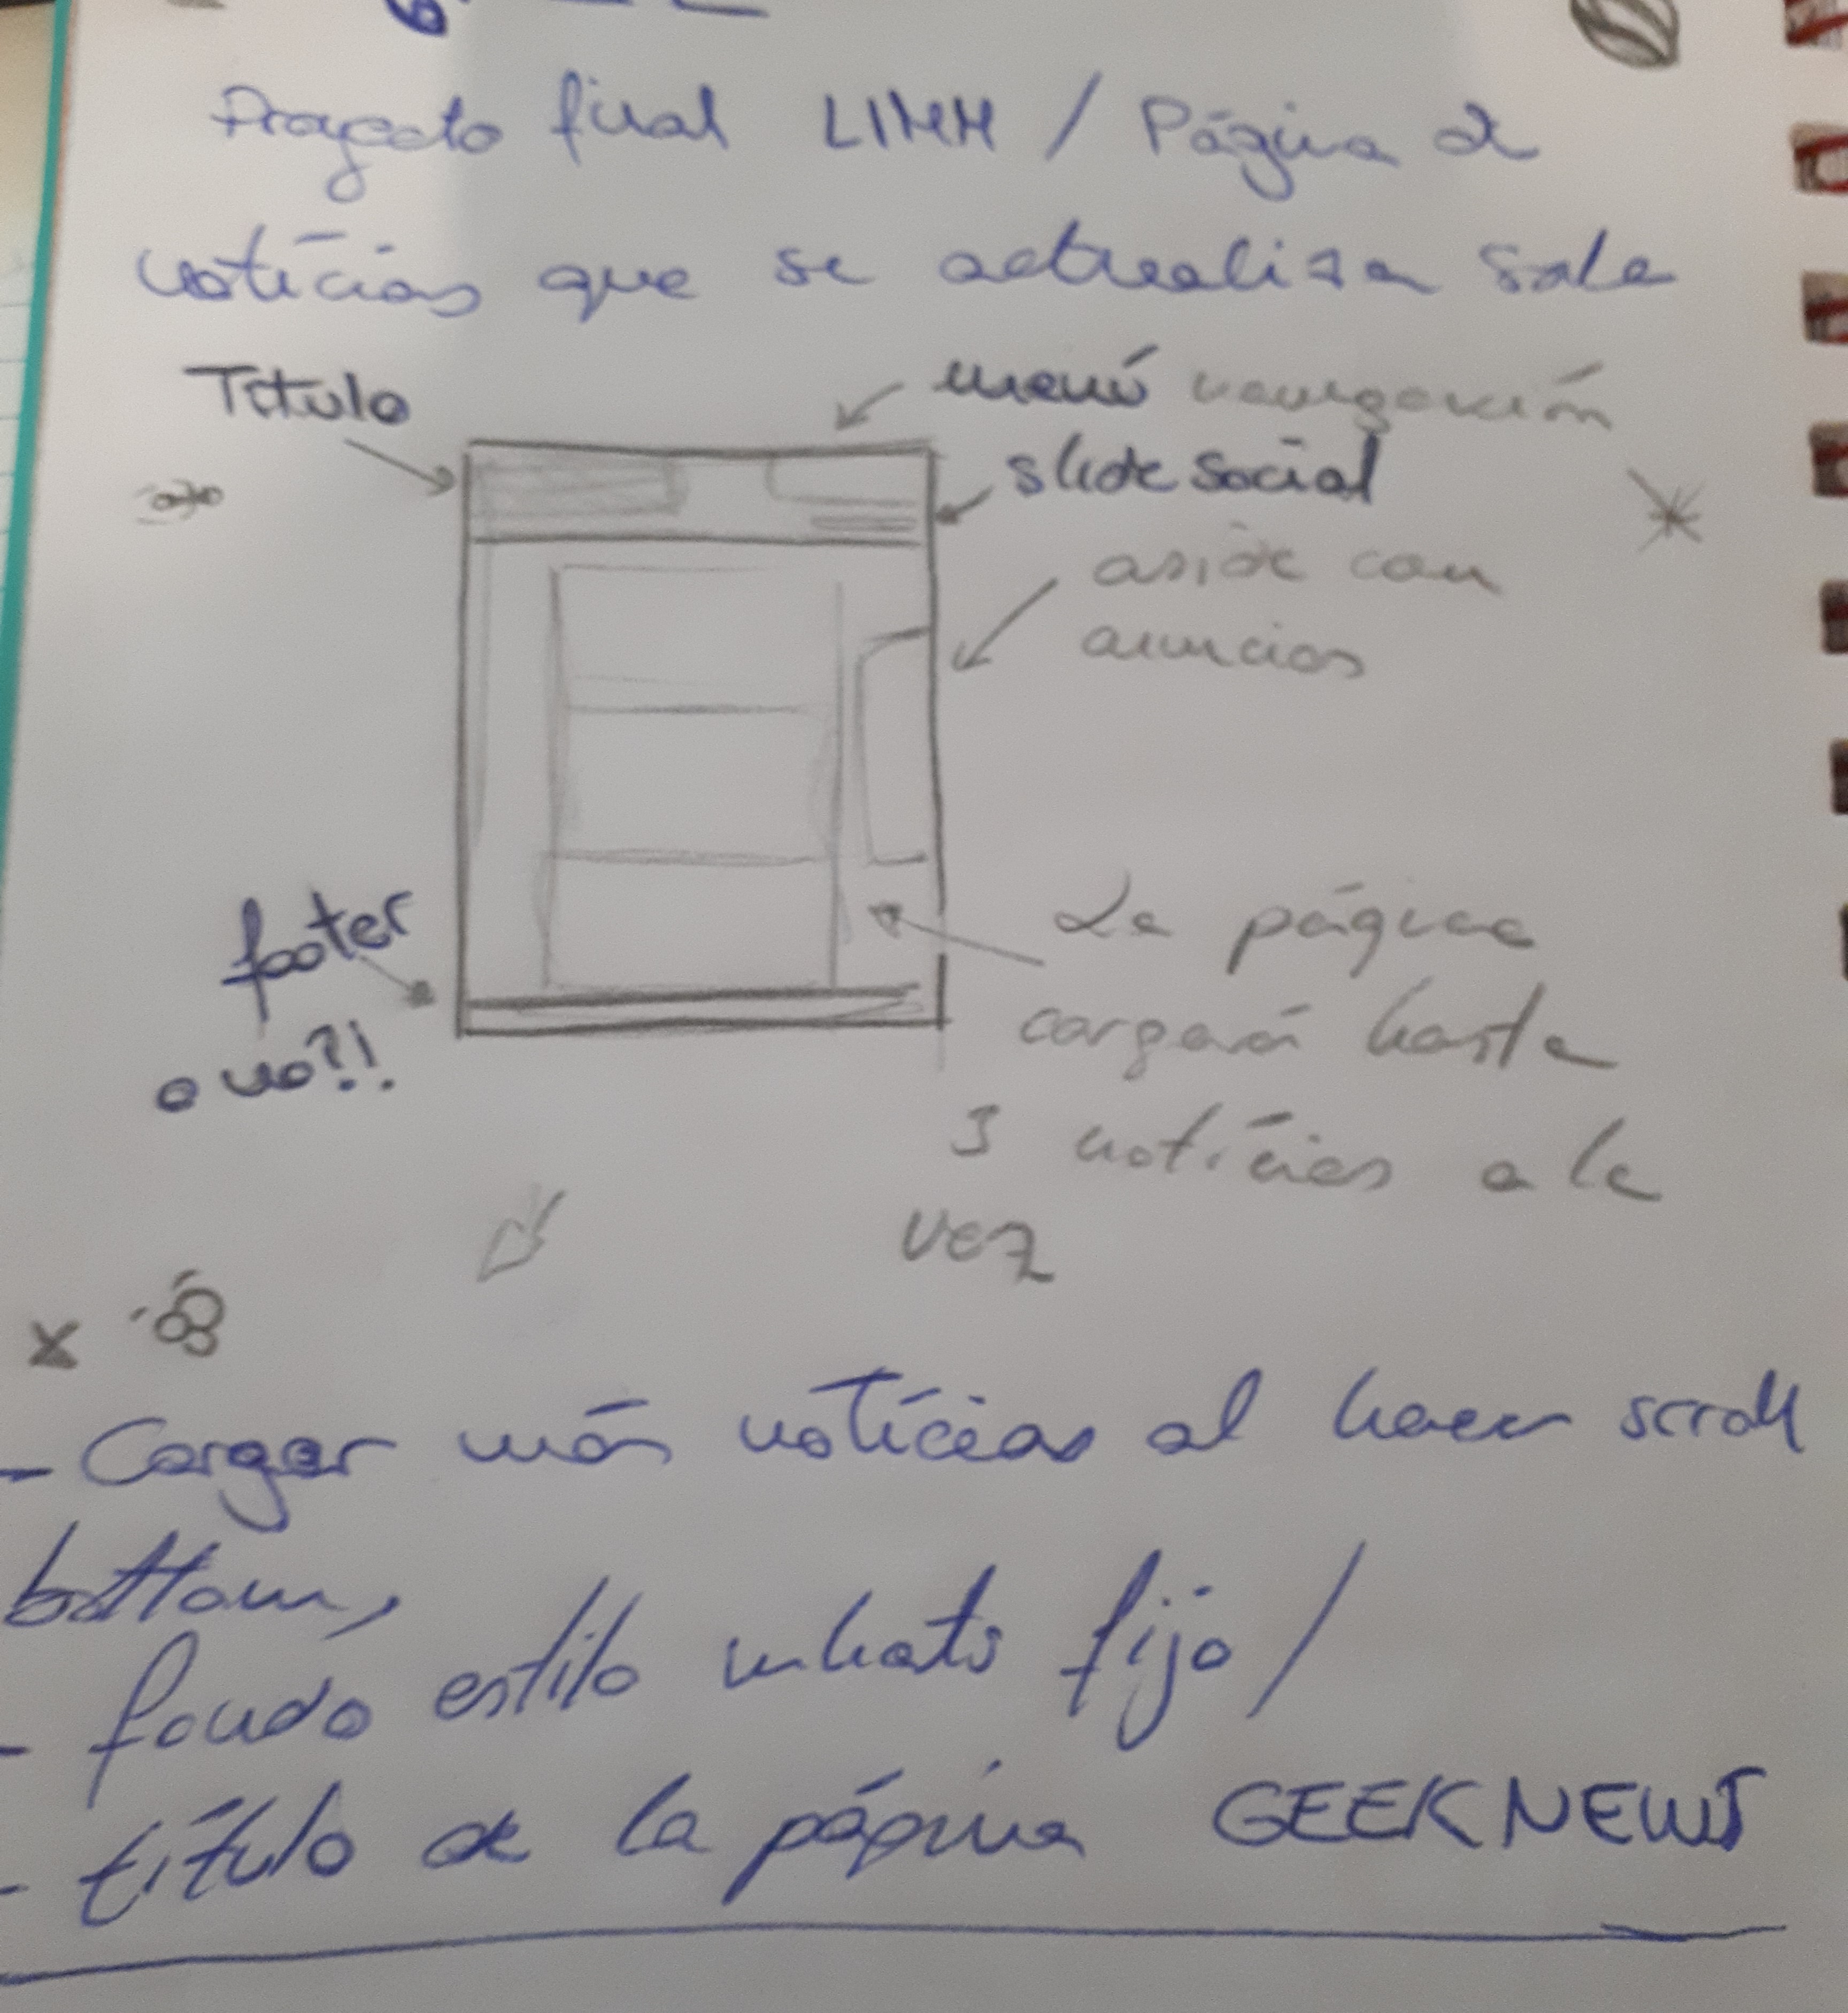 Proyecto final LIMM / Página de
notícias que se actualiza sola
Titulo
menú navegación
slide social
aside con
anuncios
footer
o no?!
La página
cargará hasta
3 notícias a la
vez
- Cargar más notícias al hacer scroll
bottom,
- fondo estilo whats fijo /
- título de la página GEEKNEWS